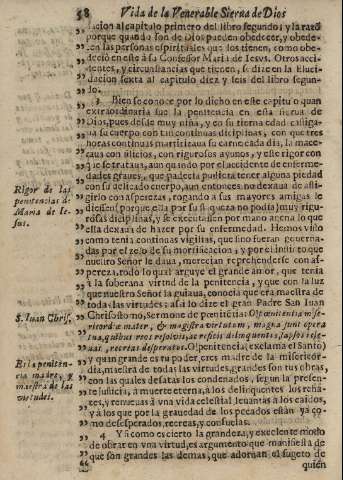 58 Vida de la Venerable Sierva de Dios
lucion al capitulo primero del libro segundo; y la razõ
porque quando son de Dios pueden obedecer, y obede-
cen las personas espirituales que los tienen, como obe-
deciò en este à su Confessor Maria de Iesus. Otros acci-
dentes, y circunstancias que tienen, se dizen en la Eluci-
dacion sexta al capitulo diez y seis del libro segun-
do.
3 Bien se conoce por lo dicho en este capitulo quan
extraordinaria fue la penitencia en esta sierva de
Dios, pues desde muy niña, y en su tierna edad castiga-
ua su cuerpo con tan continuas diciplinas, con que tres
horas continuas martirizaua su carne cada dia, la mace-
raua con silicios, con rigurosos ayunos y este rigor con
que se trataua, aun quando por el accidente de enferme-
dades graues, que padecia pudiera tener alguna piedad
con su delicado cuerpo, aun entonces no dexaua de afli-
girlo con asperezas, rogando a sus mayores amigas le
diessen (porque ella por su flaqueza no podia) muy rigu-
rosas diciplinas, y se executassen por mano agena lo que
ella dexaua de hazer por su enfermedad. Hemos visto
como tenia continuas vigilias, que sino fueran gouerna-
das por el zelo de su mortificacion, y por el instinto que
nuestro Señor le daua, merecian reprehenderse con as-
pereza, todo lo qual arguye el grande amor, que tenia
à la soberana virtud de la penitencia, y que con la luz
que nuestro Señor la guiaua, conocia que era maestra de
todas las virtudes: assi lo dize el gran Padre San Iuan
Chrisostomo, Sermone de penitencia: O pœnitentia mise-
ricordiæ mater, & magistra virtutum, magna sunt opera
tua, quibus reos resoluis, ac reficis delinquentes, lapsos rele-
uas, recreas desperatos. O penitencia (exclama el Santo)
y quin grande es tu poder, eres madre de la misericor-
dia, maestra de todas las virtudes, grandes son tus obras,
con las quales desatas los condenados, segun la presen-
te justicia, à muerte eterna, à los delinquentes los reha-
zes, y renueuas à vna vida celestial, leuantas à los caidos,
y à los que por la grauedad de los pecados estàn ya co-
mo desesperados, recreas, y consuelas.
4 Y à como es cierto la grandeza, y excelente modo
de obrar en vna virtud, es argumento que manifiesta de
que son grandes las demas, que adornan el sugeto de
quièn
Rigor de las
penitencias de
Maria de Ie-
sus.
S. Iuan Chris.
Es la peniten-
cia madre, y
maestra de las
virtudes.